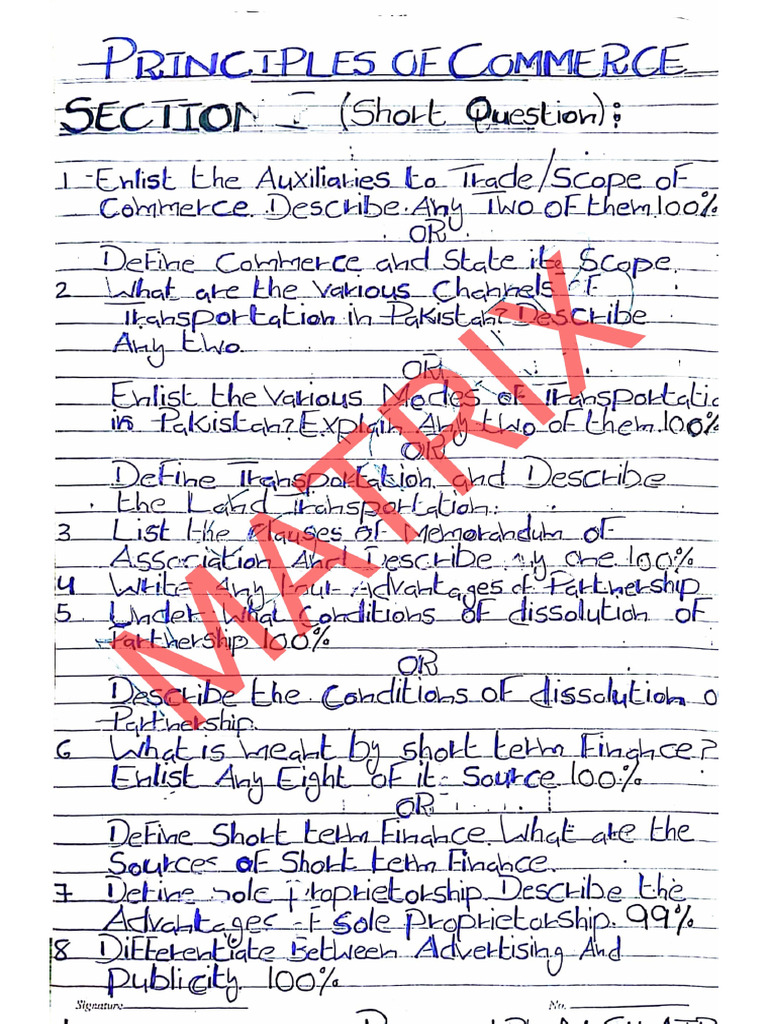 PRINCIPLES OF COMMERCE
SECTION I (Short Question):
1 - Enlist the Auxiliaries to Trade/Scope of
Commerce. Describe Any Two Of them. 100%
OR
Define Commerce and State its Scope.
2 What are the Various Channels of
Transportation in Pakistan? Describe
Any two.
OR
Enlist the Various Modes of Transportatio
in Pakistan? Explain Any two of them. 100%
OR
Define Transportation and Describe
the Land Transportation.
3 List the Clauses of Memorandum of
Association And Describe Any one 100%
4 Write Any four Advantages of Partnership
5. Under What Conditions of dissolution of
Partnership 100%
OR
Describe the Conditions of dissolution o
Partnership.
6 What is meant by short term Finance?
Enlist Any Eight of its Source 100%
OR
Define Short term Finance. What are the
Sources of Short term Finance.
7 Define Sole Proprietorship. Describe the
Advantages of Sole Proprietorship. 99%
8 Differentiate Between Advertising And
Publicity. 100%
Signature
No.
MATRIX